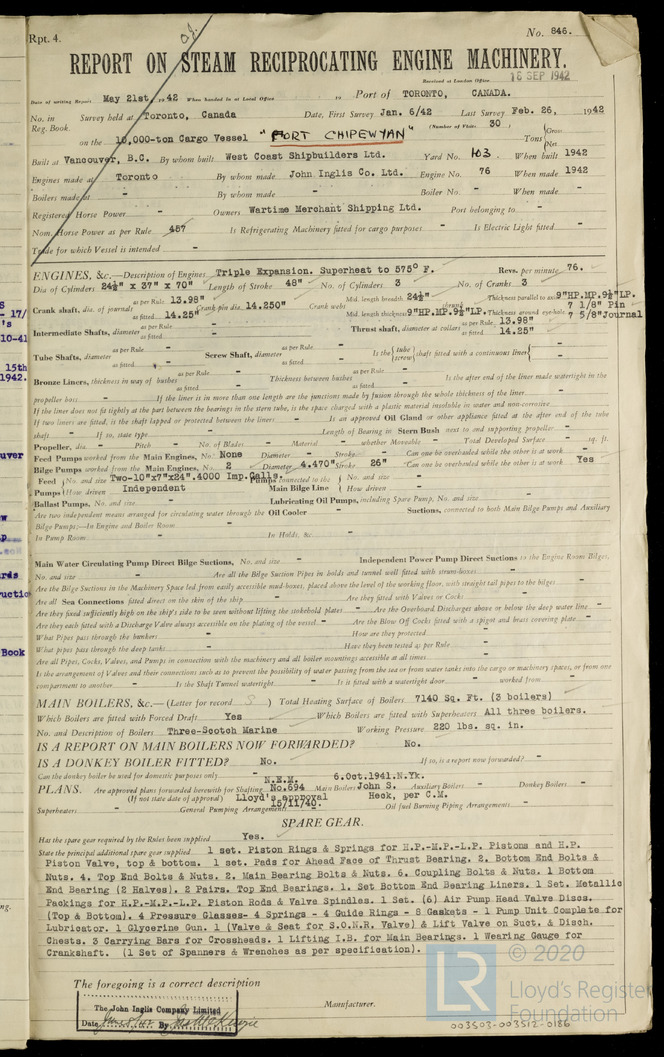 Rpt. 4.
No. 846.
REPORT ON STEAM RECIPROCATING ENGINE MACHINERY.
Received at London Office 16 SEP 1942
Date of writing Report May 21st, 1942 When handed in at Local Office 19 Port of TORONTO, CANADA.
No. in Reg. Book. Survey held at Toronto, Canada Date, First Survey Jan. 6/42 Last Survey Feb. 26, 1942
(Number of Visits 30
on the 10,000-ton Cargo Vessel "FORT CHIPEWYAN" Tons {Gross Net
Built at Vancouver, B.C. By whom built West Coast Shipbuilders Ltd. Yard No. 103 When built 1942
Engines made at Toronto By whom made John Inglis Co. Ltd. Engine No. 76 When made 1942
Boilers made at - By whom made - Boiler No. - When made -
Registered Horse Power - Owners Wartime Merchant Shipping Ltd. Port belonging to -
Nom. Horse Power as per Rule 457 Is Refrigerating Machinery fitted for cargo purposes - Is Electric Light fitted -
Trade for which Vessel is intended -
ENGINES, &c.—Description of Engines Triple Expansion. Superheat to 575° F. Revs. per minute 76.
Dia of Cylinders 24½" x 37" x 70" Length of Stroke 48" No. of Cylinders 3 No. of Cranks 3
Crank shaft, dia. of journals as per Rule 13.98" as fitted 14.25" Crank pin dia. 14.250" Crank webs Mid. length breadth 24½" Mid. length thickness 9"HP.MP.9½"LP. shrunk Thickness parallel to axis 9"HP.MP.9½"LP. Thickness around eye-hole 7 1/8" Pin 7 5/8"Journal
Intermediate Shafts, diameter as per Rule - as fitted Thrust shaft, diameter at collars as per Rule 13.98" as fitted 14.25"
Tube Shafts, diameter as per Rule - as fitted - Screw Shaft, diameter as per Rule - as fitted - Is the {tube screw} shaft fitted with a continuous liner { -
Bronze Liners, thickness in way of bushes as per Rule - as fitted Thickness between bushes as per Rule as fitted - Is the after end of the liner made watertight in the
propeller boss - If the liner is in more than one length are the junctions made by fusion through the whole thickness of the liner
If the liner does not fit tightly at the part between the bearings in the stern tube, is the space charged with a plastic material insoluble in water and non-corrosive
If two liners are fitted, is the shaft lapped or protected between the liners - Is an approved Oil Gland or other appliance fitted at the after end of the tube
shaft - If so, state type - Length of Bearing in Stern Bush next to and supporting propeller -
Propeller, dia. - Pitch - No. of Blades - Material - whether Moveable - Total Developed Surface - sq. ft.
Feed Pumps worked from the Main Engines, No. None Diameter - Stroke - Can one be overhauled while the other is at work -
Bilge Pumps worked from the Main Engines, No. 2 Diameter 4.470" Stroke 26" Can one be overhauled while the other is at work Yes
Feed Pumps {No. and size Two-10"x7"x24".4000 Imp.Galls. Pumps connected to the Main Bilge Line { No. and size -
How driven Independent How driven -
Ballast Pumps, No. and size - Lubricating Oil Pumps, including Spare Pump, No. and size -
Are two independent means arranged for circulating water through the Oil Cooler - Suctions, connected to both Main Bilge Pumps and Auxiliary
Bilge Pumps;—In Engine and Boiler Room -
In Pump Room - In Holds, &c. -
Main Water Circulating Pump Direct Bilge Suctions, No. and size - Independent Power Pump Direct Suctions to the Engine Room Bilges,
No. and size - Are all the Bilge Suction Pipes in holds and tunnel well fitted with strum-boxes -
Are the Bilge Suctions in the Machinery Space led from easily accessible mud-boxes, placed above the level of the working floor, with straight tail pipes to the bilges -
Are all Sea Connections fitted direct on the skin of the ship - Are they fitted with Valves or Cocks -
Are they fixed sufficiently high on the ship's side to be seen without lifting the stokehold plates - Are the Overboard Discharges above or below the deep water line -
Are they each fitted with a Discharge Valve always accessible on the plating of the vessel - Are the Blow Off Cocks fitted with a spigot and brass covering plate -
What Pipes pass through the bunkers - How are they protected -
What pipes pass through the deep tanks - Have they been tested as per Rule -
Are all Pipes, Cocks, Valves, and Pumps in connection with the machinery and all boiler mountings accessible at all times -
Is the arrangement of Valves and their connections such as to prevent the possibility of water passing from the sea or from water tanks into the cargo or machinery spaces, or from one
compartment to another - Is the Shaft Tunnel watertight - Is it fitted with a watertight door - worked from -
MAIN BOILERS, &c.—(Letter for record S ) Total Heating Surface of Boilers 7140 Sq. Ft. (3 boilers)
Which Boilers are fitted with Forced Draft Yes Which Boilers are fitted with Superheaters All three boilers.
No. and Description of Boilers Three-Scotch Marine Working Pressure 220 lbs. sq. in.
IS A REPORT ON MAIN BOILERS NOW FORWARDED? No.
IS A DONKEY BOILER FITTED? No. If so, is a report now forwarded? -
Can the donkey boiler be used for domestic purposes only -
PLANS. Are approved plans forwarded herewith for Shafting N.E.M. No.694 Main Boilers 6.Oct.1941.N.Yk. John S. Auxiliary Boilers - Donkey Boilers -
(If not state date of approval) Lloyd's approval Heck, per C.M.
Superheaters - General Pumping Arrangements 15/11/40. Oil fuel Burning Piping Arrangements -
SPARE GEAR.
Has the spare gear required by the Rules been supplied Yes.
State the principal additional spare gear supplied 1 set. Piston Rings & Springs for H.P.-M.P.-L.P. Pistons and H.P.
Piston Valve, top & bottom. 1 set. Pads for Ahead Face of Thrust Bearing. 2. Bottom End Bolts &
Nuts. 4. Top End Bolts & Nuts. 2. Main Bearing Bolts & Nuts. 6. Coupling Bolts & Nuts. 1 Bottom
End Bearing (2 Halves). 2 Pairs. Top End Bearings. 1. Set Bottom End Bearing Liners. 1 Set. Metallic
Packings for H.P.-M.P.-L.P. Piston Rods & Valve Spindles. 1 Set. (6) Air Pump Head Valve Discs.
(Top & Bottom). 4 Pressure Glasses- 4 Springs - 4 Guide Rings - 8 Gaskets - 1 Pump Unit Complete for
Lubricator. 1 Glycerine Gun. 1 (Valve & Seat for S.O.N.R. Valve) & Lift Valve on Suct. & Disch.
Chests. 3 Carrying Bars for Crossheads. 1 Lifting I.B. for Main Bearings. 1 Wearing Gauge for
Crankshaft. (1 Set of Spanners & Wrenches as per specification).
The foregoing is a correct description
The John Inglis Company Limited Manufacturer.
Date By
LR © 2020
Lloyd's Register
Foundation
003503-003512-0186